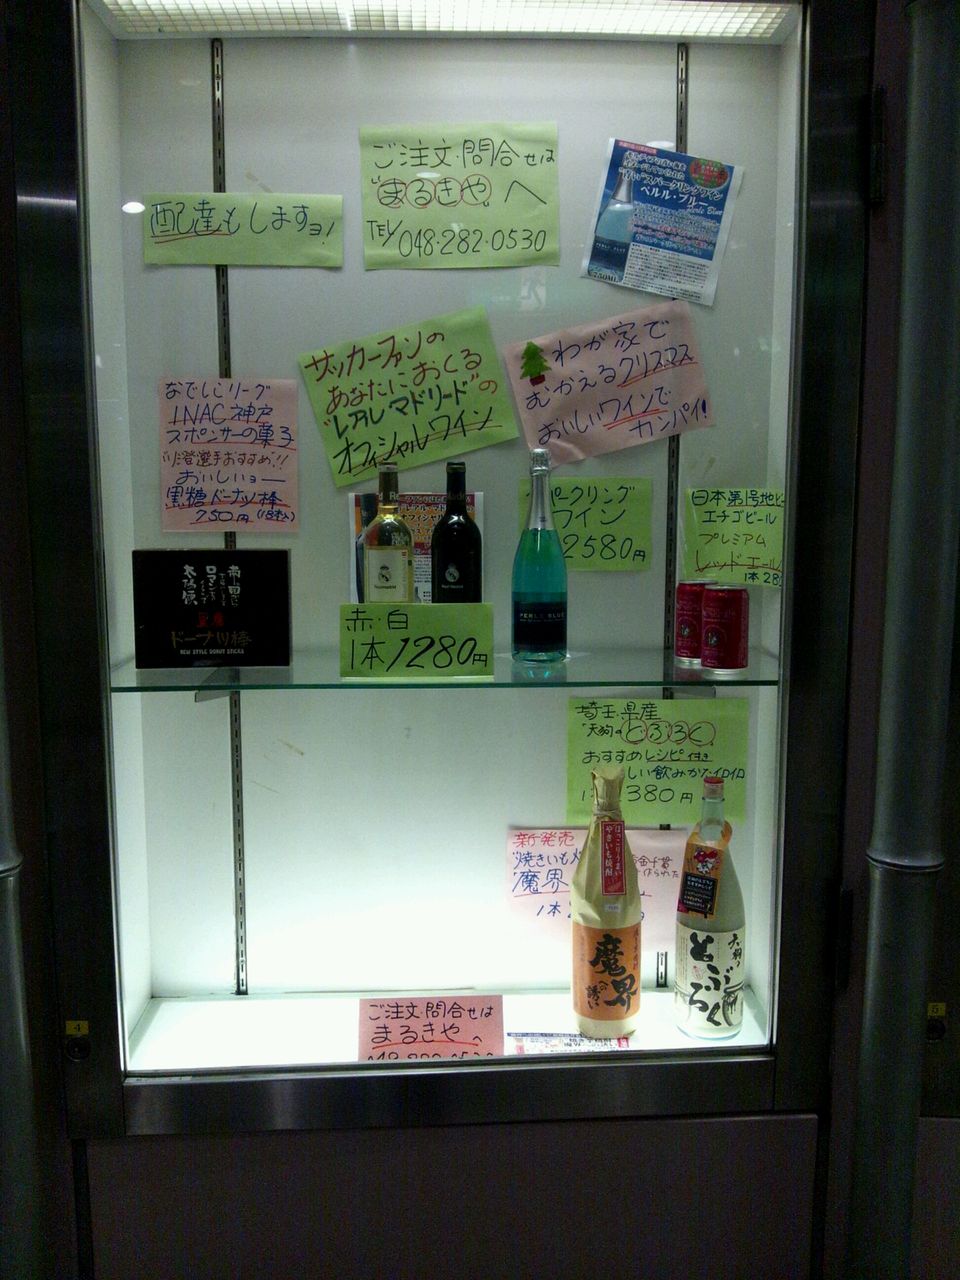 ご注文・問合せは
"まるきや"へ
TEL 048・282・0530
配達もしますヨ!
"青い"スパークリングワイン
ペルル・ブルー
Perle Bleue
750ML
サッカーファンの
あなたにおくる
"レアル マドリード"の
オフィシャルワイン
わが家で
むかえるクリスマス
おいしいワインで
カンパイ!
なでしこリーグ
INAC神戸
スポンサーの菓子
選手おすすめ!!
おいしいョー
黒糖ドーナツ棒
750円(18本入)
ワイン
2580円
日本第1号地ビ
エチゴビール
プレミアム
レッドエール
1本28
ドーナツ棒
NEW STYLE DONUT STICKS
赤・白
1本1280円
PERLE BLEUE
埼玉県産
"天狗のどぶろく"
おすすめレシピ付き
しい飲みかたイロイロ
380円
新発売
"焼きいも
"魔界
1本
ほっこりうまい
やきいも焼酎
魔界
への誘い
天狗の
どぶろく
ご注文・問合せは
まるきやへ